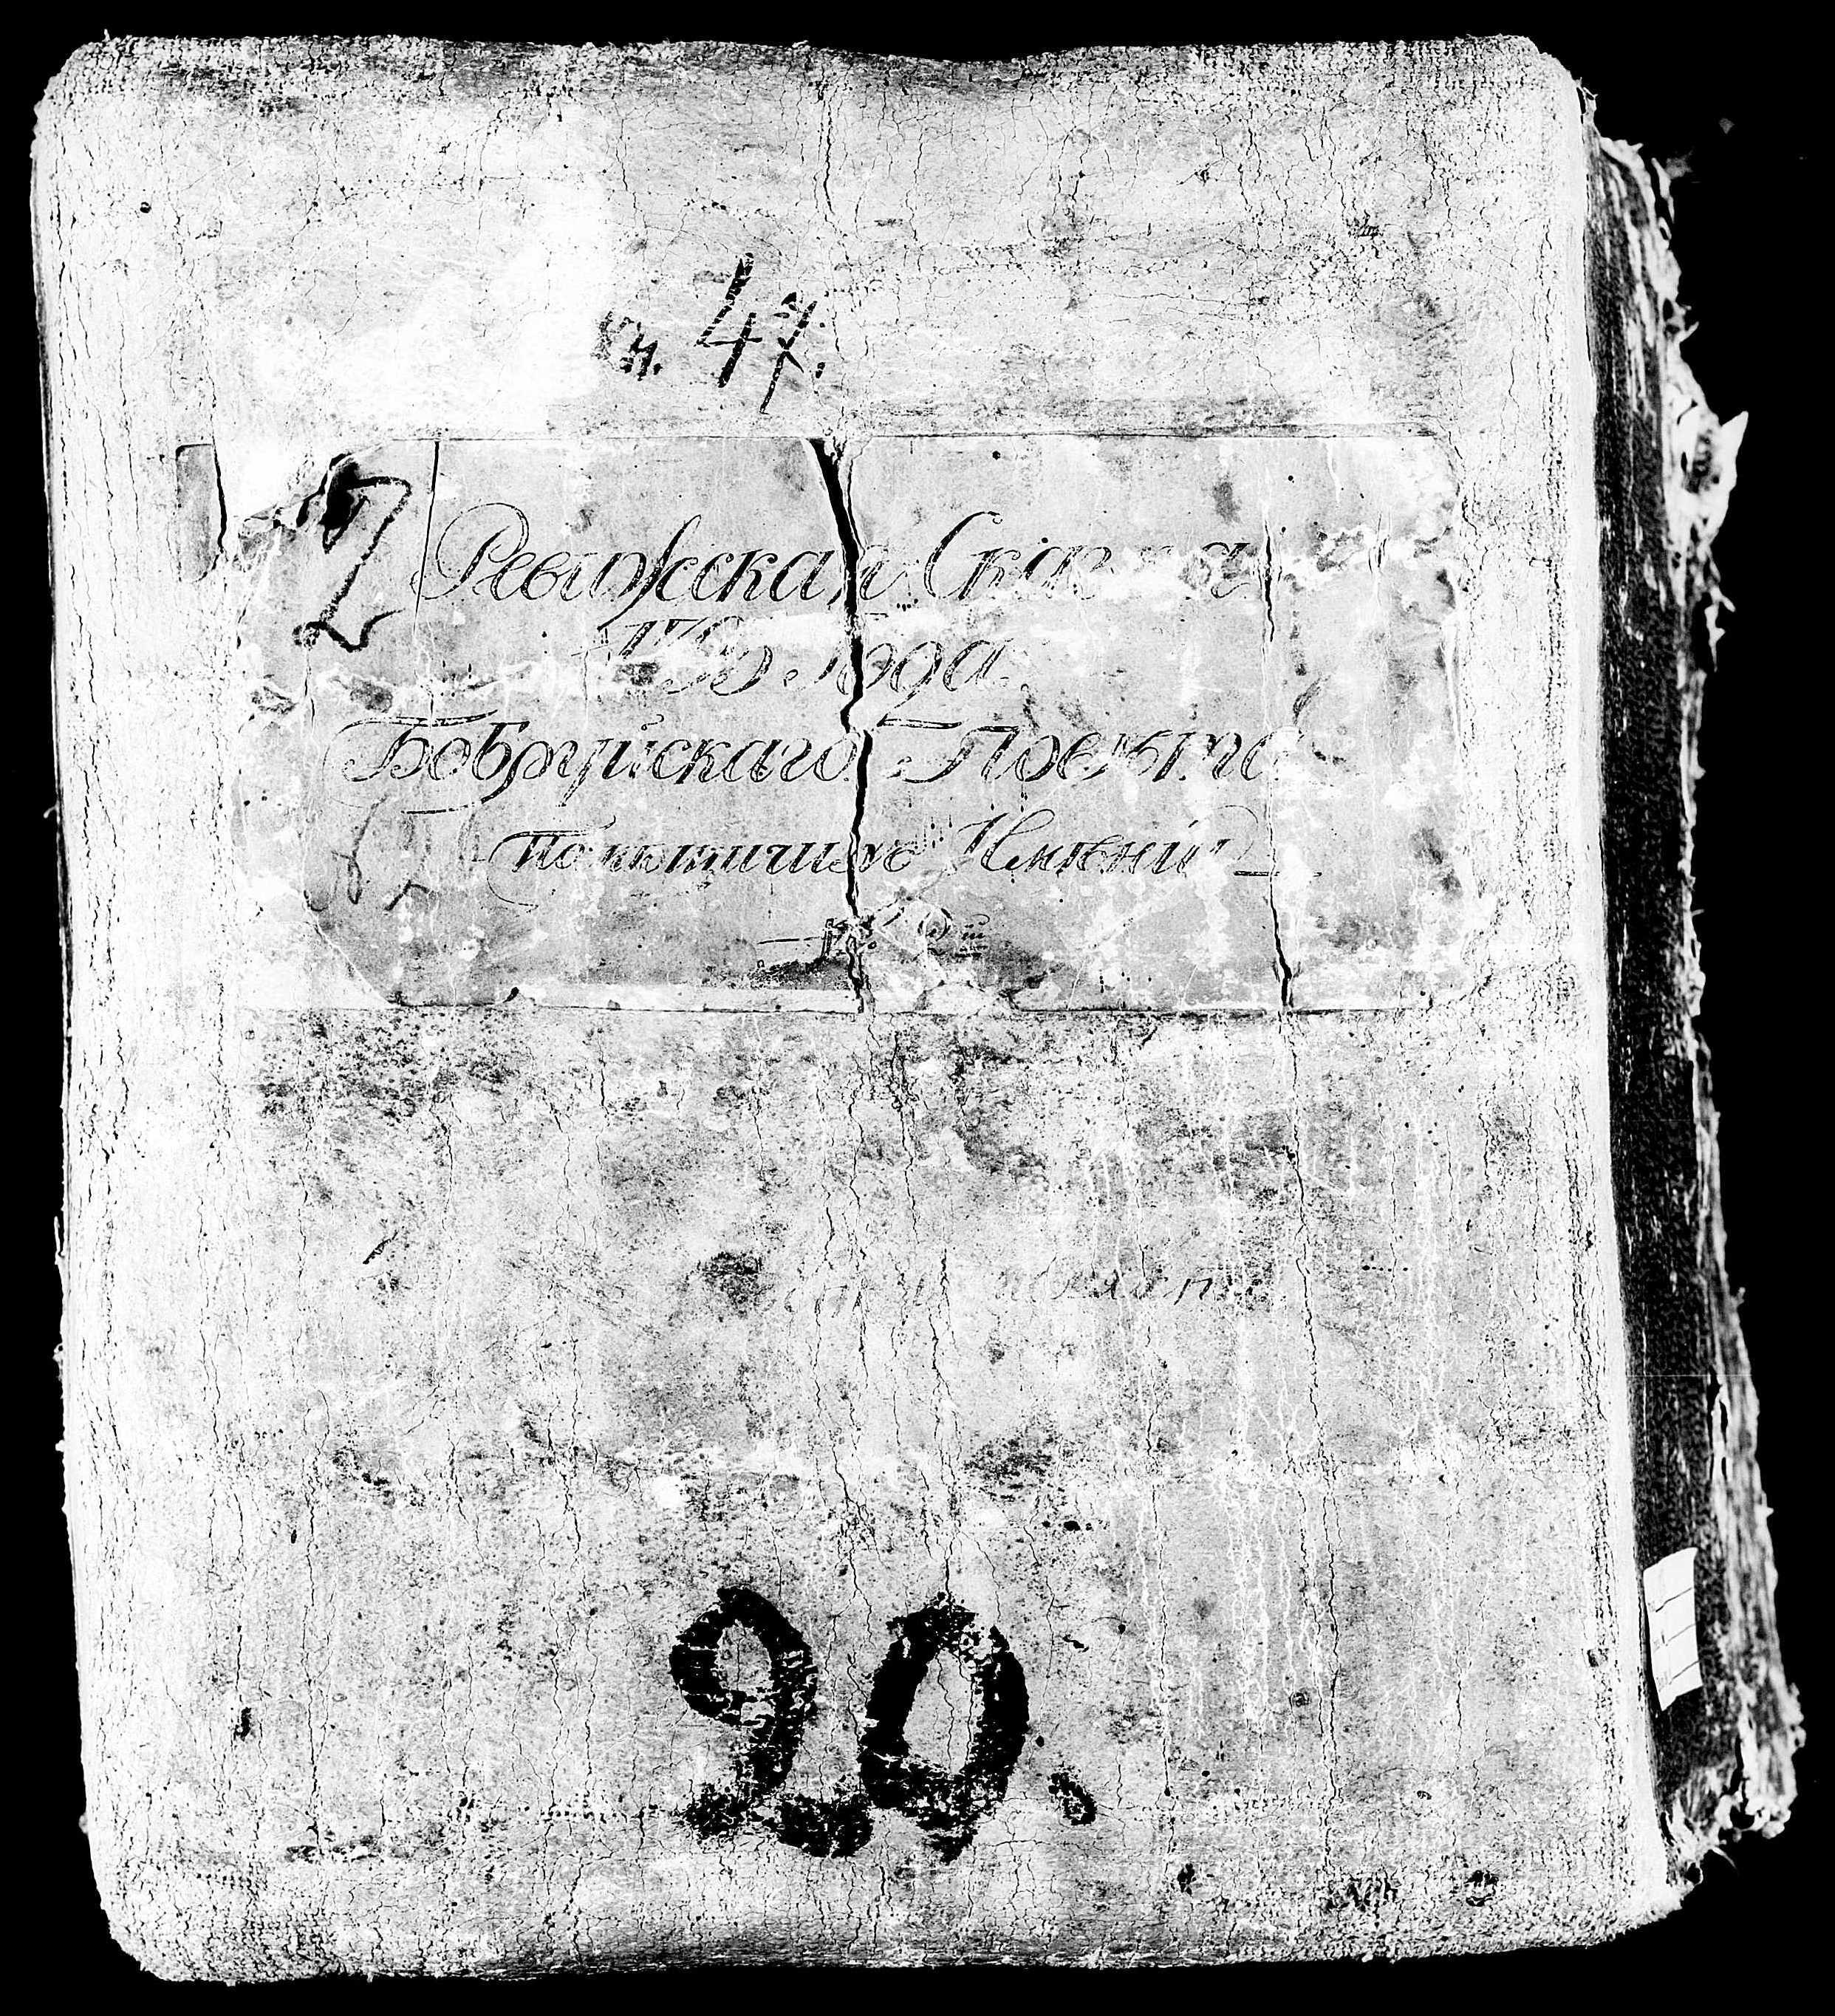 47.
2
Ревижская Сказка
Года
Бобруйскаго Повѣта
Помѣтичихъ Имѣний
90.